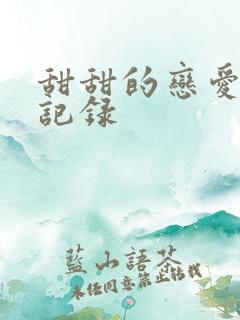 甜甜的戀愛
記録
藍山語茶
未經同意禁止轉載